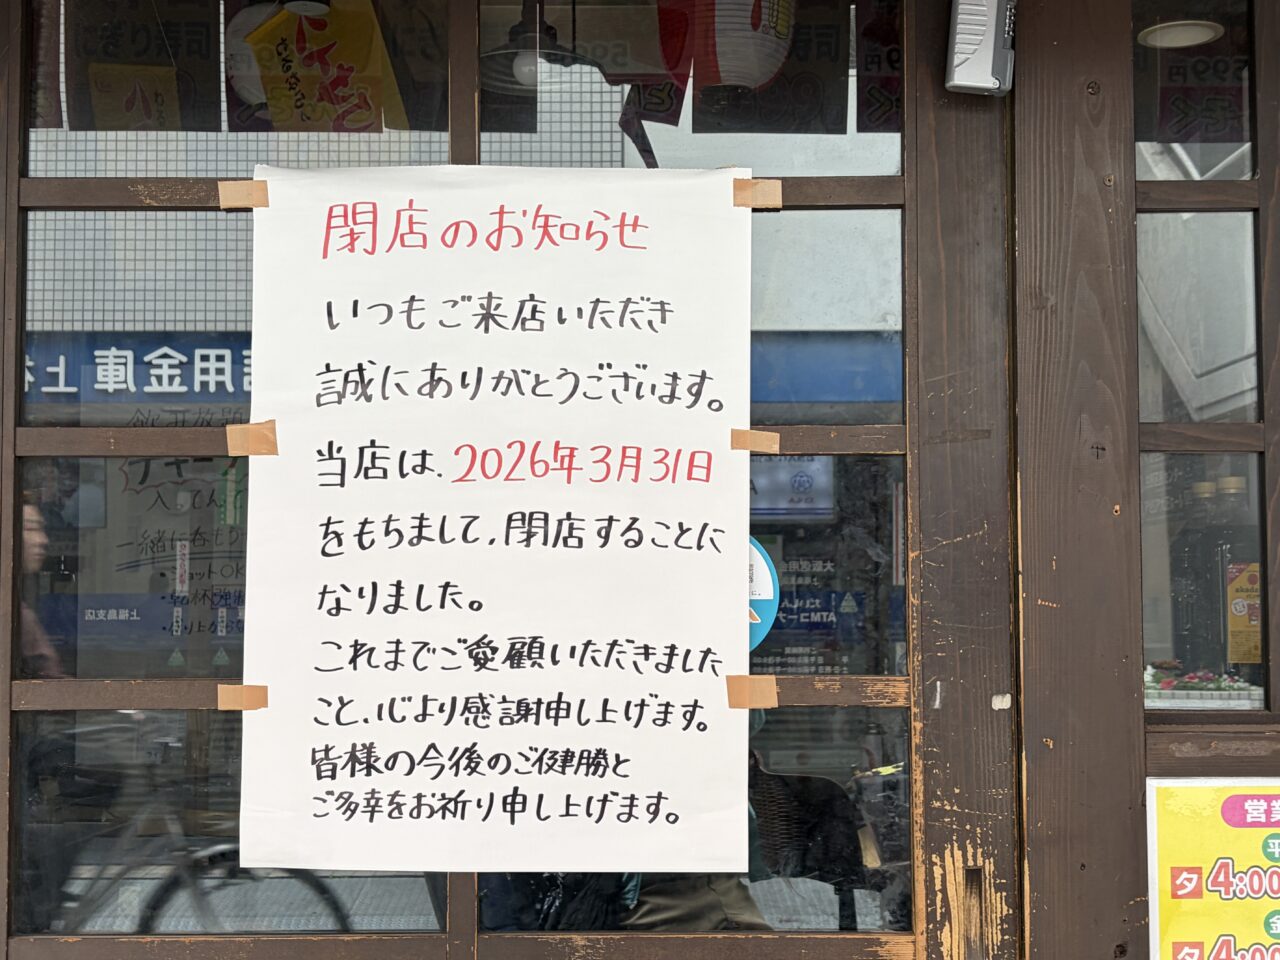 閉店のお知らせ
いつもご来店いただき
誠にありがとうございます。
当店は、2026年3月31日
をもちまして、閉店することに
なりました。
これまでご愛顧いただきました
こと、心より感謝申し上げます。
皆様の今後のご健勝と
ご多幸をお祈り申し上げます。
信用金庫 上
飲み放題
一緒に呑もう
・ショットOK
上福島支店
ATMコーナー
599円
営業
夕 4:00
夕 4:00